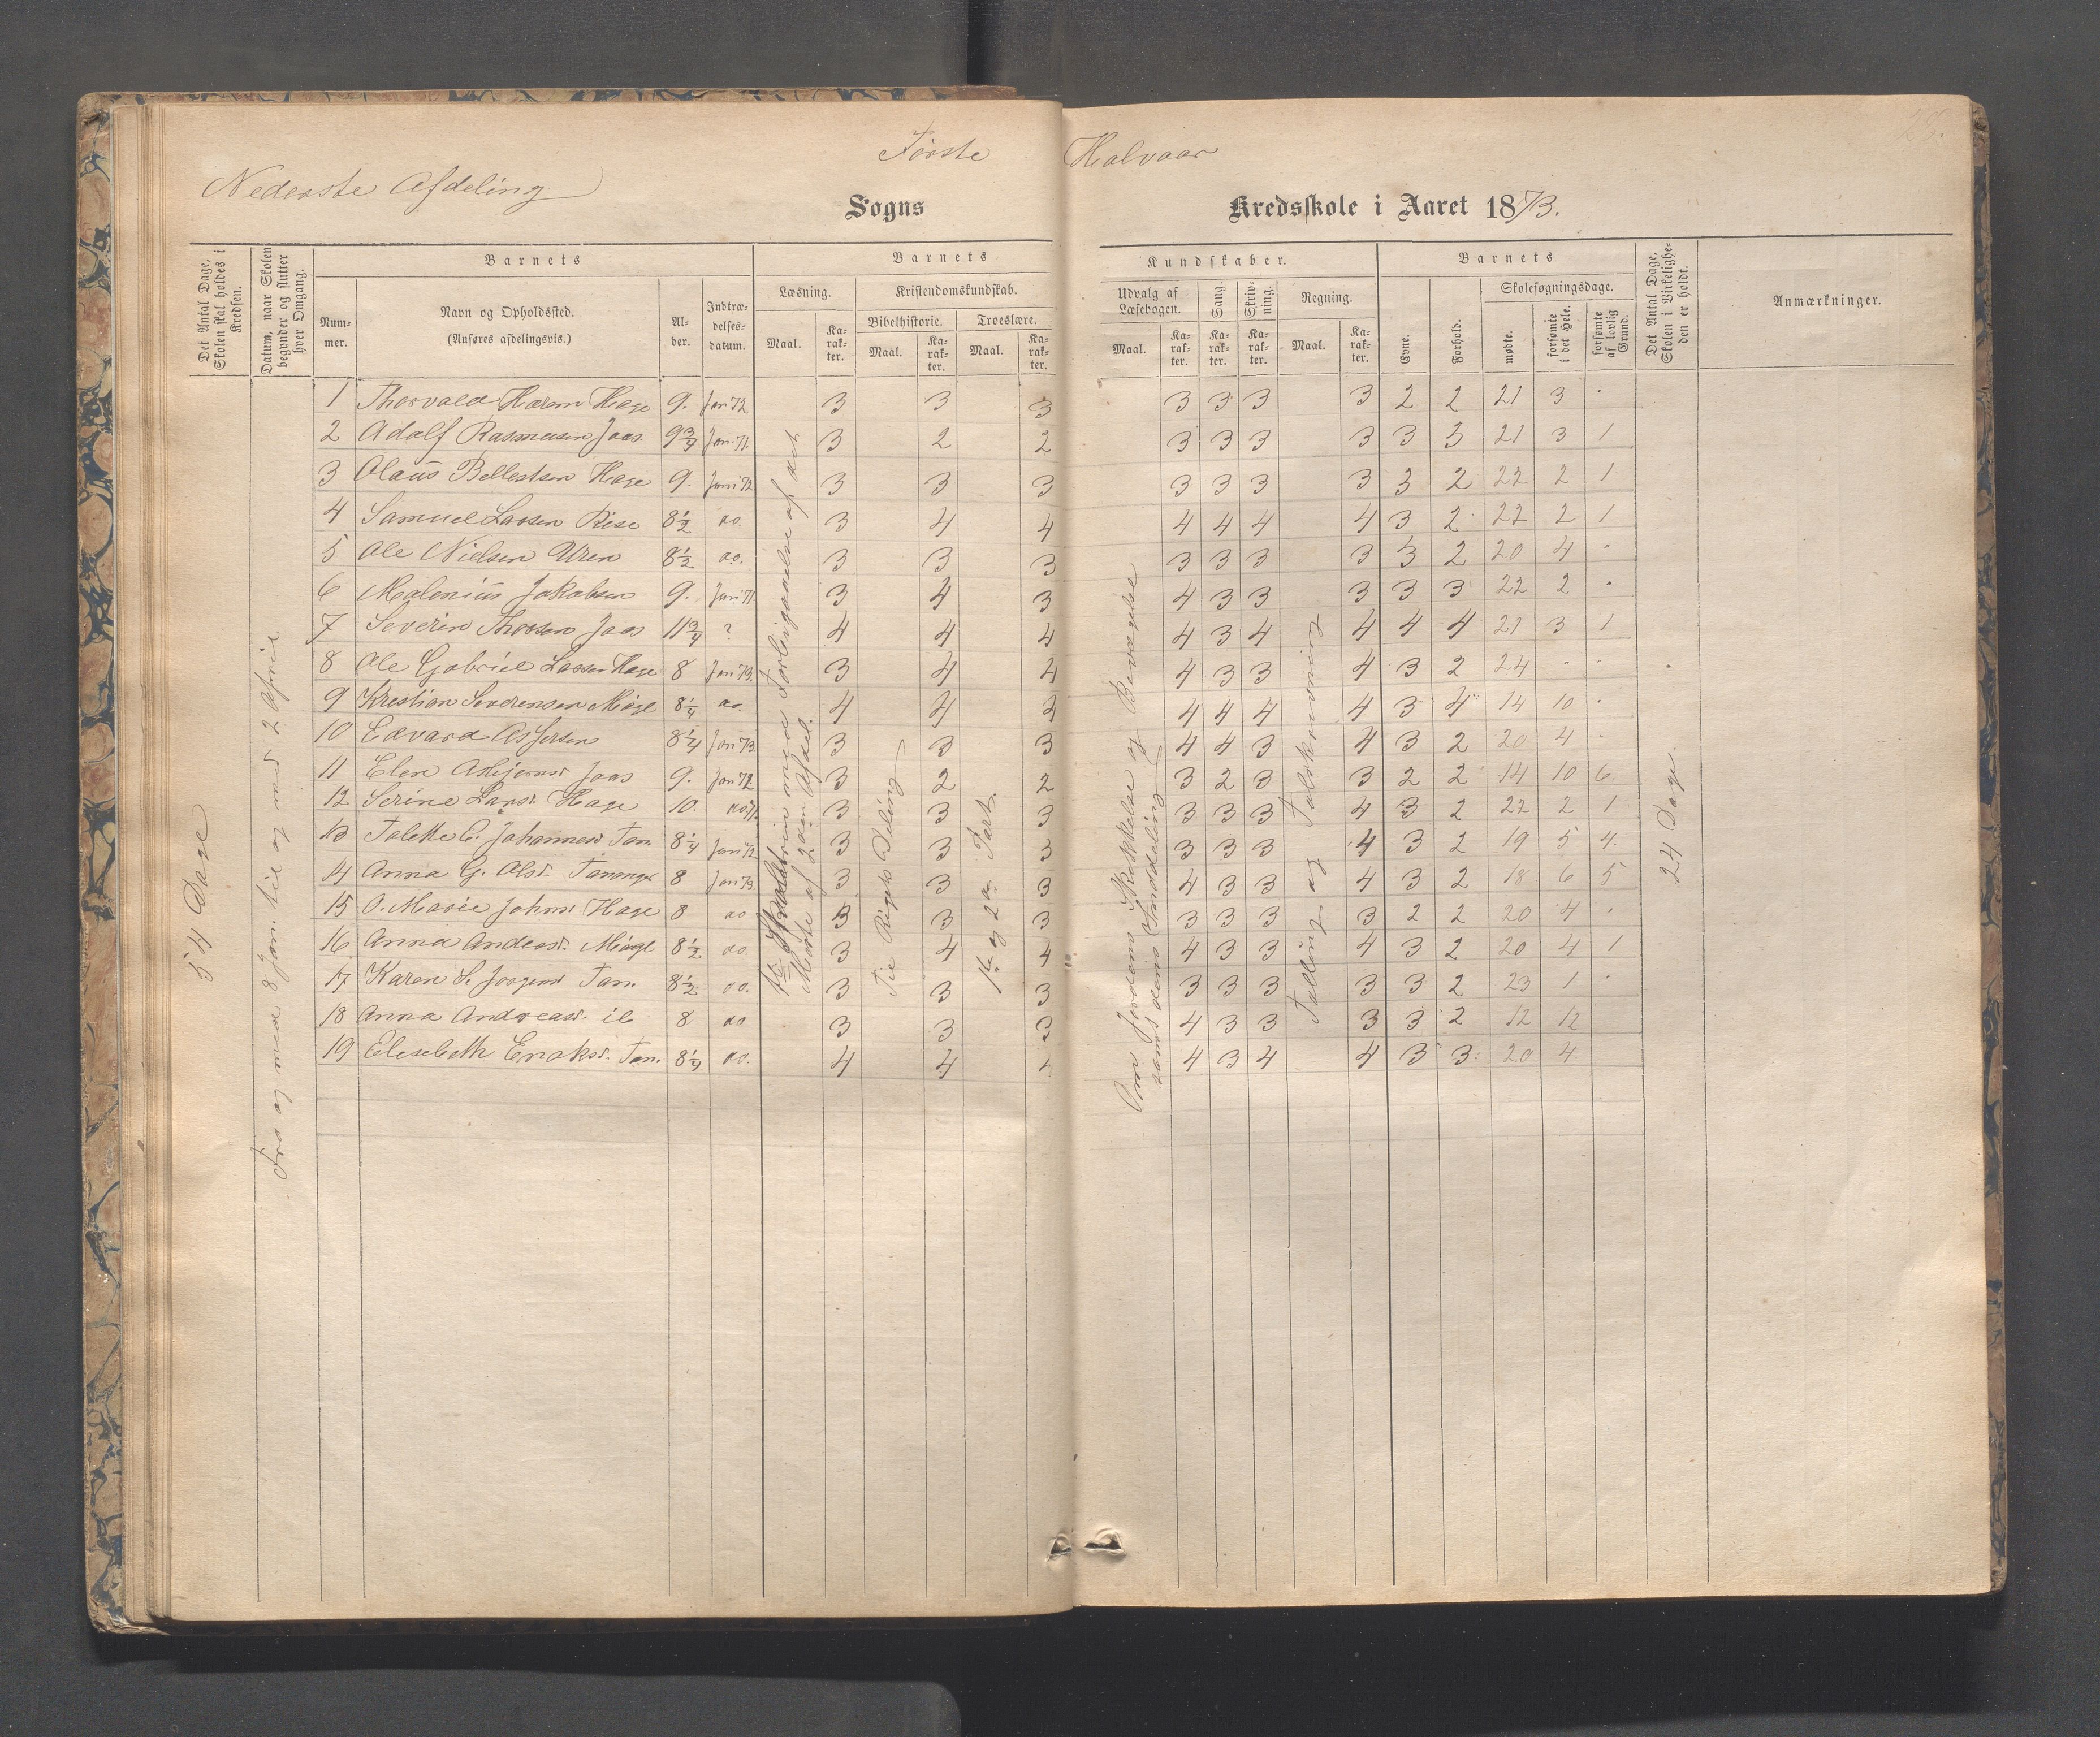 Første Halvaar
Nederste Afdeling
Sogns Kredsskole i Aaret 1873.
Det Antal Dage, Skolen skal holdes i Kredsen.
Datum, naar Skolen begynder og slutter hver Omgang.
Barnets
Nummer.
Navn og Opholdssted.
(Anføres afdelingsvis.)
Alder.
Indtrædelsesdatum.
Barnets Kundskaber.
Læsning.
Kristendomskundskab.
Bibelhistorie.
Troeslære.
Maal.
Karakter.
Maal.
Karakter.
Maal.
Karakter.
Udvalg af Læsebogen.
Sang.
Skrivning.
Regning.
Maal.
Karakter.
Karakter.
Karakter.
Maal.
Karakter.
Barnets
Evne.
Forhold.
Skolesøgningsdage.
mødte.
forsømte i det Hele.
forsømte af lovlig Grund.
Det Antal Dage, Skolen i Virkeligheden er holdt.
Anmærkninger.
54 Dage
Fra og med 8 Jan. til og med 2 April
1 Thorvald Harem Hage 9. Jan 72 3 3 3 3 3 3 3 2 2 21 3 .
2 Adolf Rasmussen Jaas 9 3/4 Jan. 71. 3 2 2 3 3 3 3 3 3 21 3 1
3 Olaus Bellestsen Hage 9. Juni 72 3 3 3 3 3 3 3 3 2 22 2 1
4 Samuel Larsen Rise 8 1/2 do. 3 4 4 4 4 4 4 3 2 22 2 1
5 Ole Nielsen Uren 8 1/2 do. 3 3 3 3 3 3 3 3 2 20 4 .
6 Malenius Jakobsen 9. Jan. 71. 3 4 3 4 3 3 3 3 3 22 2 .
7 Severin Thorsen Jaas 11 3/4 ? 4 4 4 4 3 4 4 4 4 21 3 1
8 Ole Gabriel Larsen Hage 8 Jan 73. 3 4 4 4 3 3 4 3 2 24 . .
9 Kristian Sørensen Miøge 8 1/4 do. 4 4 4 4 4 4 4 3 4 14 10 .
10 Edvard Asjersen 8 1/4 Jan 73. 3 3 3 4 4 3 4 3 2 20 4 .
11 Elen Asbjørnsd Jaas 9. Jan 72 3 2 2 3 2 3 3 2 2 14 10 6.
12 Serine Larsd. Hage 10. do 71. 3 3 3 3 3 3 4 3 2 22 2 1
13 Talette C. Johannesd Tan. 8 1/4 Jan 72 3 3 3 3 3 3 4 3 2 19 5 4.
14 Anna G. Olsd. Tananger 8 Jan 73. 3 3 3 4 3 3 4 3 2 18 6 5
15 O. Marie Johnsd Hage 8 do 3 3 3 3 3 3 3 2 2 20 4 .
16 Anna Andersd. Miøge 8 1/2 do. 3 4 4 4 3 3 4 3 2 20 4 1
17 Karen S. Jørgensd Tan. 8 1/2 do. 3 3 3 3 3 3 3 3 2 23 1 .
18 Anna Andreasd. ib 8 do 3 3 3 4 3 3 3 3 2 12 12
19 Elisebeth Enoksd. Tan. 8 1/4 do. 4 4 4 4 3 4 4 3 3. 20 4.
med Forligganelse af det Meste af 2den Afdel.
Til Rigets Deling
1ste og 2den Part.
Om Jordens Skikkelse og Bevægelse samt dens Inddeling
Tælling og Talskrivning
24 Dage.